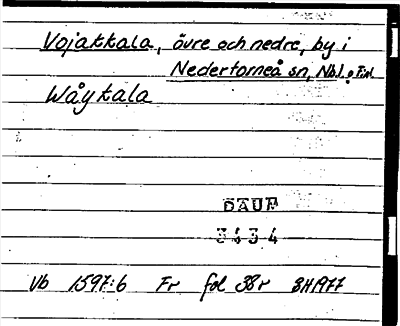 Vojakkala, övre och nedre, by i
Nedertorneå sn, Nbl. o Finl.
Wåykala
DAUM
3434
Vb 1597:6 Fr fol 38r SH1977